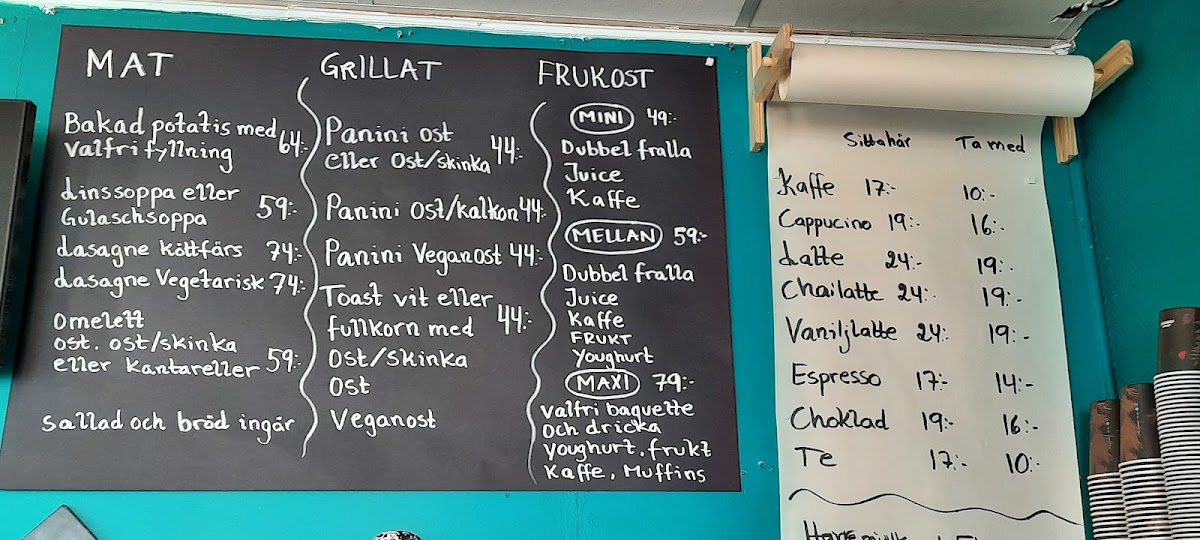 MAT
Bakad potatis med
valfri fyllning 64:-
Linssoppa eller
Gulaschsoppa 59:-
Lasagne Köttfärs 74:-
Lasagne Vegetarisk 74:-
Omelett
ost. ost/skinka
eller kantareller 59:-
Sallad och bröd ingår
GRILLAT
Panini ost
eller Ost/skinka 44:-
Panini Ost/kalkon 44:-
Panini Veganost 44:-
Toast vit eller
fullkorn med 44:-
Ost/skinka
Ost
Veganost
FRUKOST
MINI 49:-
Dubbel fralla
Juice
Kaffe
MELLAN 59:-
Dubbel fralla
Juice
Kaffe
FRUKT
Youghurt
MAXI 79:-
Valfri baguette
och dricka
Youghurt. frukt
Kaffe, Muffins
Sitta här Ta med
Kaffe 17:- 10:-
Cappucino 19:- 16:-
Latte 24:- 19:-
Chailatte 24:- 19:-
Vaniljlatte 24:- 19:-
Espresso 17:- 14:-
Choklad 19:- 16:-
Te 17:- 10:-